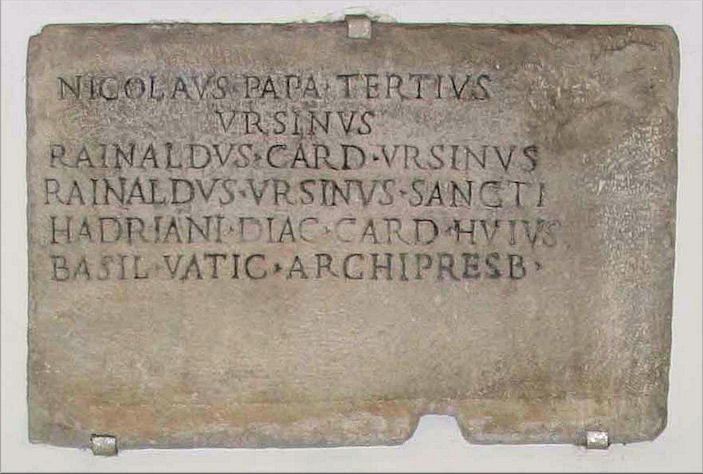 NICOLAVS·PAPA·TERTIVS
VRSINVS
RAINALDVS·CARD·VRSINVS
RAINALDVS·VRSINVS·SANCTI
HADRIANI·DIAC·CARD·HVIVS
BASIL·VATIC·ARCHIPRESB·